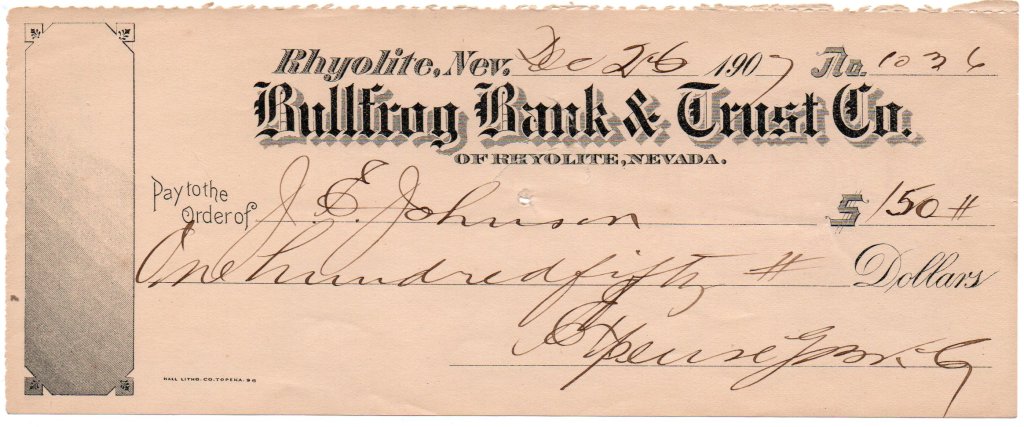 Rhyolite, Nev. Dec 26 1907 No. 1036
Bullfrog Bank & Trust Co.
OF RHYOLITE, NEVADA.
Pay to the Order of J. E. Johnson $ 150 #
One hundred fifty # Dollars
Expense
HALL LITHO. CO. TOPEKA. 96